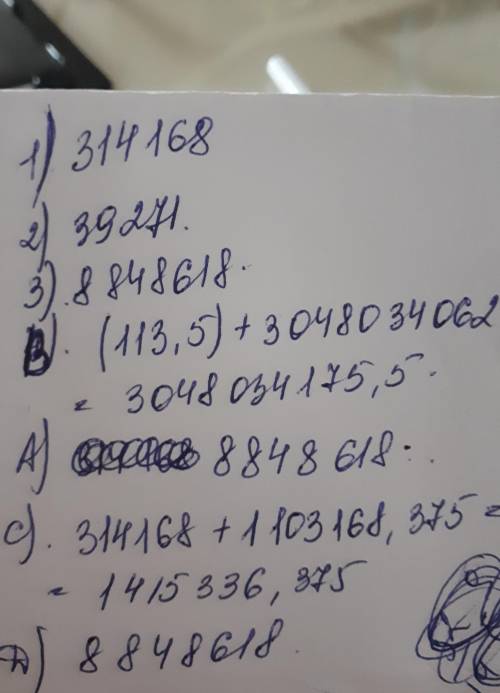 1) 314168
2) 39271.
3). 8848618.
B). (113,5)+3048034062
= 3048034175,5.
A) 8848618.
C). 314168+1103168,375=
= 1415336,375
D) 8848618.